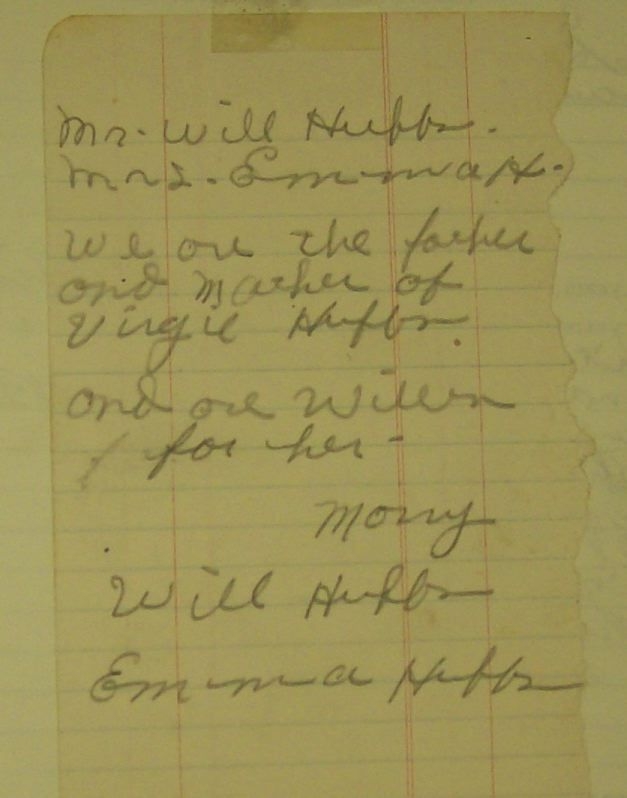 Mr. Will Hubbs.
Mrs. Emma H.
We are the father
and mother of
Virgil Hubbs.
and are Willen
for her-
Morry
Will Hubbs
Emma Hubbs